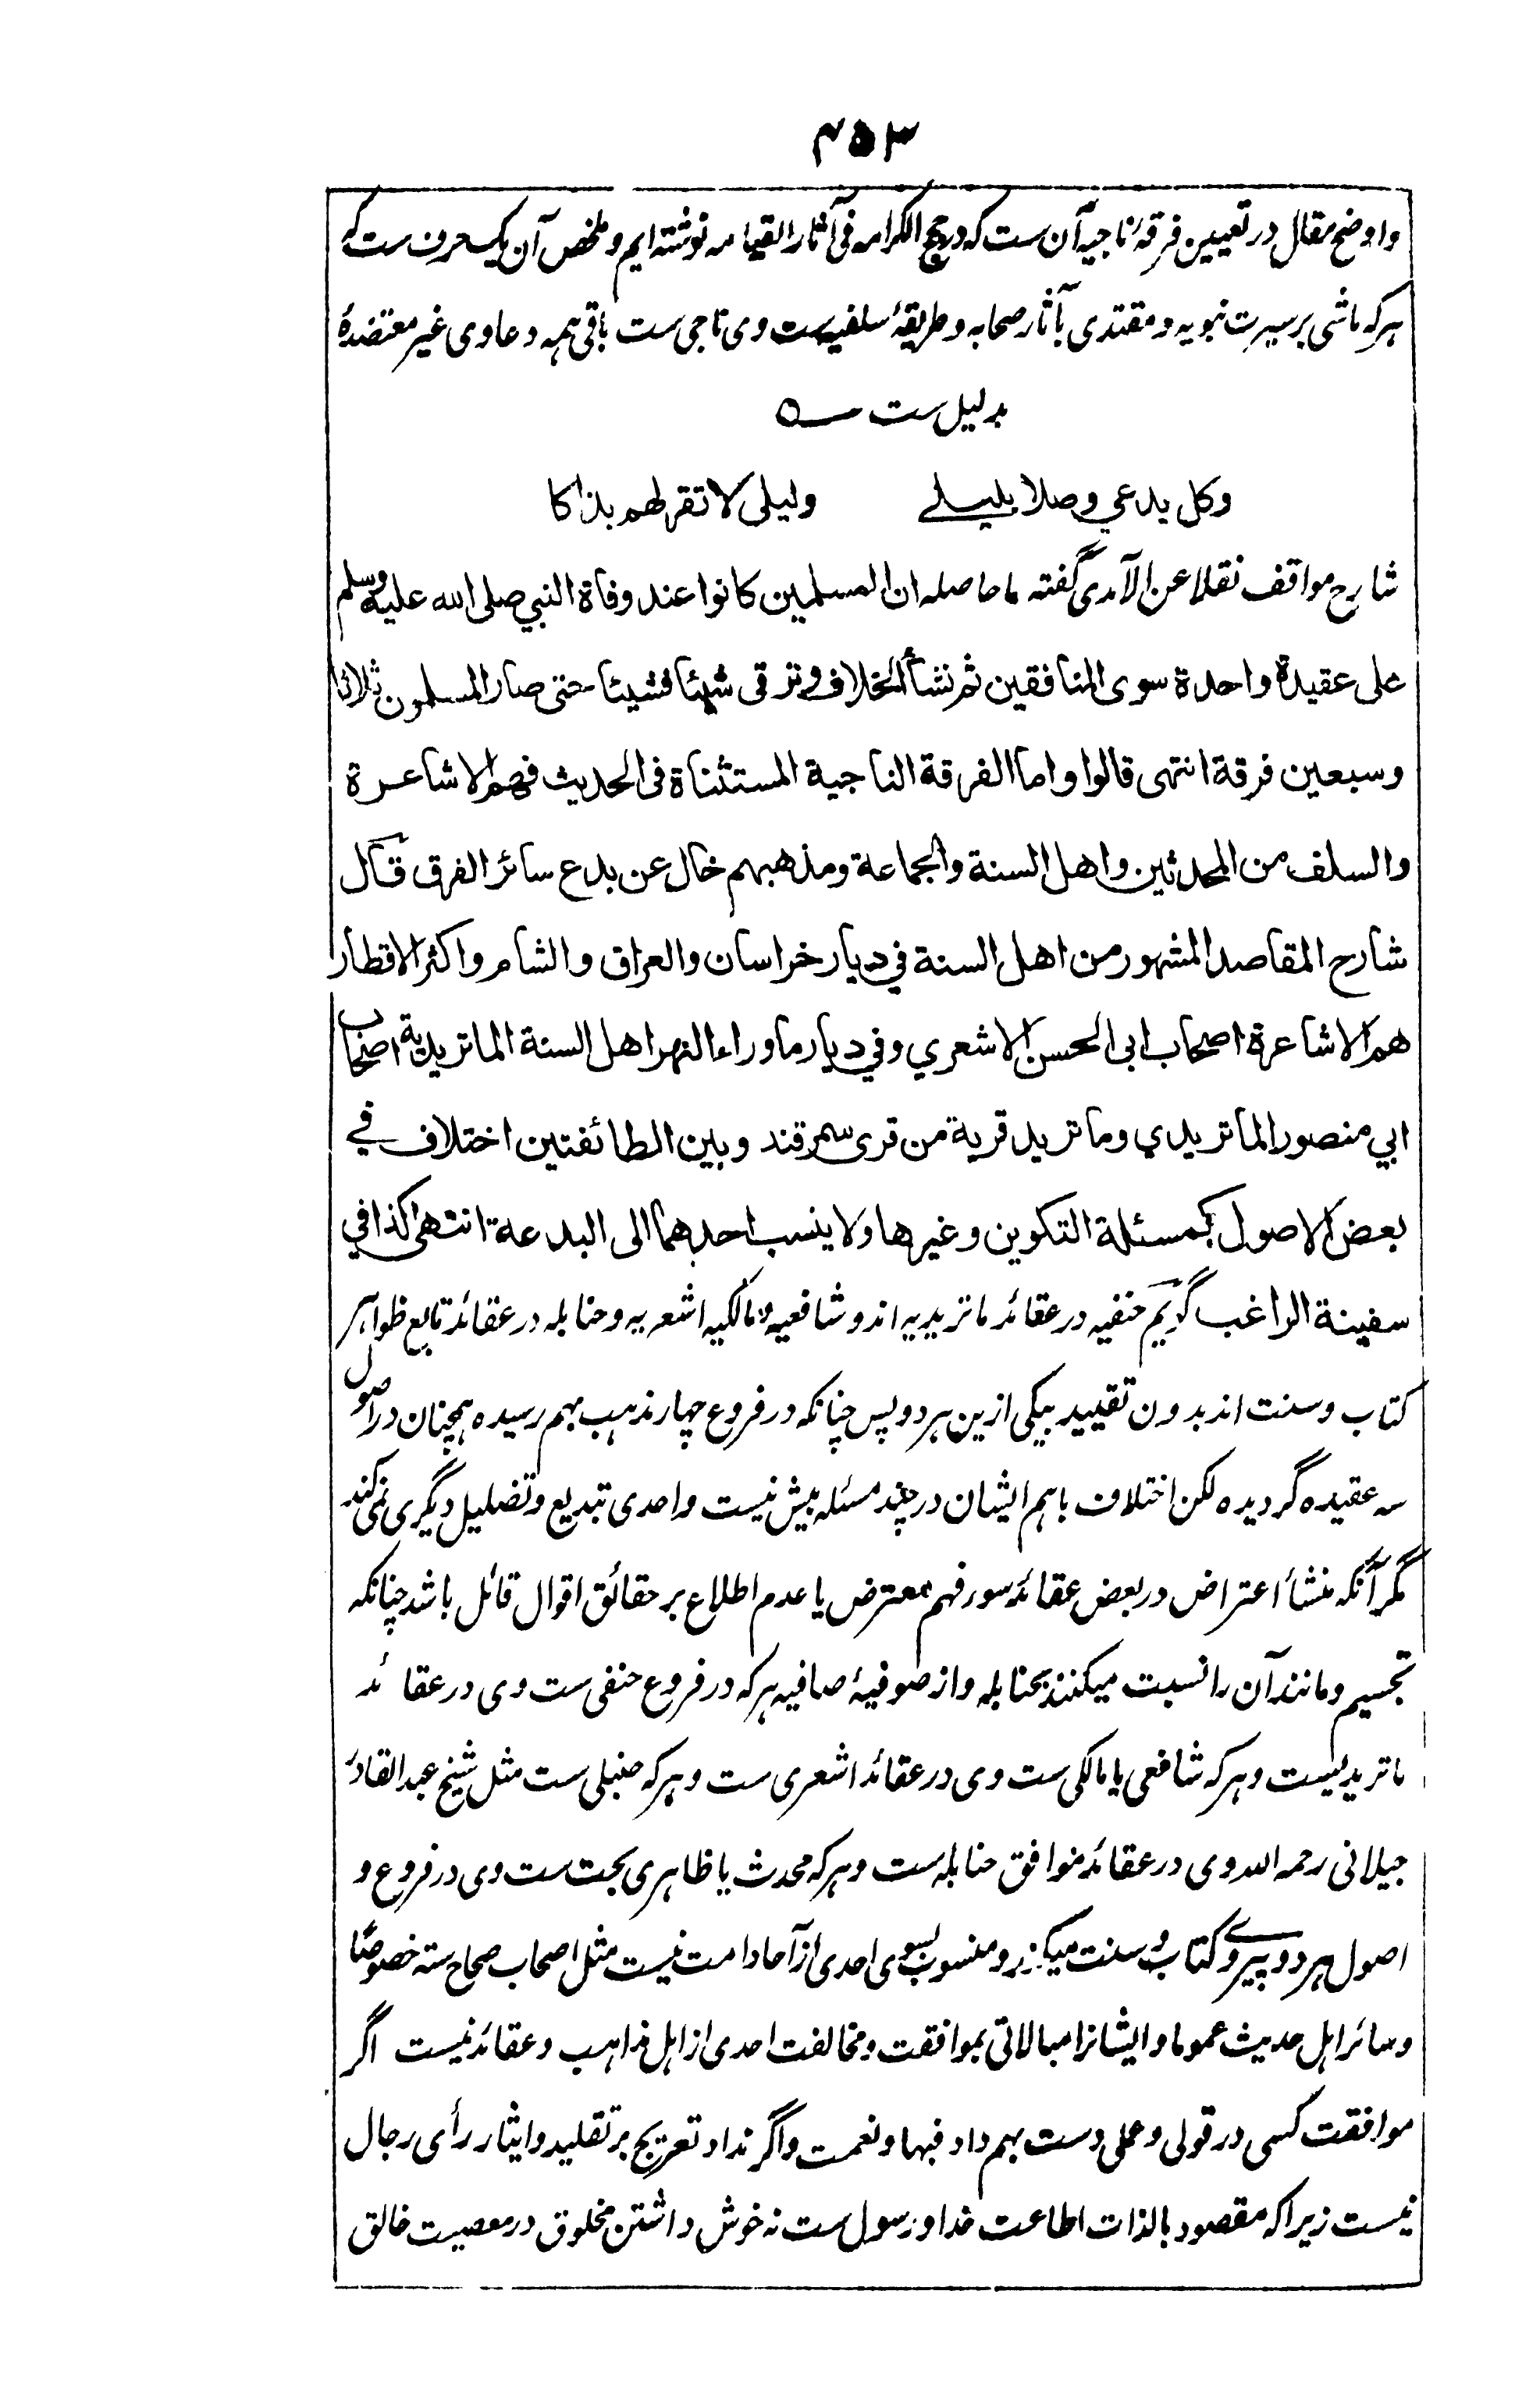 ۴۵۳
واوضح مقال در تعیین فرقهٔ ناجیه آن ست که در حجج الکرامه فی آثار القیامه نوشته ایم و ملخص آن یک حرف ست که
هر که ماشی بر سیرت نبویه و مقتدی بآثار صحابه و طریقهٔ سلفیه ست وی ناجی ست باقی همه دعاوی غیر معتضدهٔ
بدلیل ست ه
وکل یدعي وصلا بلیلے ولیلی لا تقر لهم بذاکا
شارح مواقف نقلا عن الآمدی گفته ما حاصله ان المسلمین کانوا عند وفاة النبي صلی الله علیه وسلم
علی عقیدة واحدة سوی المنافقین ثم نشأ الخلاف و ترقی شیئا فشیئا حتی صار المسلمون ثلاثا
وسبعین فرقة انتهی قالوا واما الفرقة الناجیة المستثناة فی الحدیث فهم الاشاعرة
والسلف من المحدثین واهل السنة والجماعة ومذهبهم خال عن بدع سائر الفرق قال
شارح المقاصد المشهور من اهل السنة في دیار خراسان والعراق والشام واکثر الاقطار
هم الاشاعرة اصحاب ابی الحسن الاشعري وفي دیار ماوراء النهر اهل السنة الماتریدیة اصحاب
ابي منصور الماتریدي وماترید قریة من قری سمرقند وبین الطائفتین اختلاف في
بعض الاصول کمسئلة التکوین وغیرها ولا ینسب احدهما الی البدعة انتهی کذا في
سفینة الراغب گویم حنفیه در عقائد ماتریدیه اند و شافعیه و مالکیه اشعریه و حنابله در عقائد تابع ظواهر
کتاب و سنت اند بدون تقیید بیکی ازین هر دو پس چنانکه در فروع چهار مذهب بهم رسیده همچنان در اصول
سه عقیده گردیده لکن اختلاف باهم ایشان در چند مسئله بیش نیست و احدی تبدیع و تضلیل دیگری نمی کند
مگر آنکه منشأ اعتراض در بعض عقائد سوء فهم معترض یا عدم اطلاع بر حقائق اقوال قائل باشد چنانکه
تجسیم و مانند آن را نسبت میکنند بحنابله و از صوفیهٔ صافیه هر که در فروع حنفی ست وی در عقائد
ماتریدیست و هر که شافعی یا مالکی ست وی در عقائد اشعری ست و هر که حنبلی ست مثل شیخ عبدالقادر
جیلانی رحمه الله وی در عقائد موافق حنابله ست و هر که محدث یا ظاهری بحت ست وی در فروع و
اصول هر دو پیروی کتاب و سنت میکند و منسوب بسوی احدی از آحاد امت نیست مثل اصحاب صحاح سته خصوصا
و سائر اهل حدیث عموما و ایشانرا مبالاتی بموافقت و مخالفت احدی از اهل مذاهب و عقائد نیست اگر
موافقت کسی در قولی و عملی دست بهم داد فبها و نعمت و اگر نداد تعریج بر تقلید و ایثار رأی رجال
نیست زیرا که مقصود بالذات اطاعت خدا و رسول ست نه خوش داشتن مخلوق در معصیت خالق